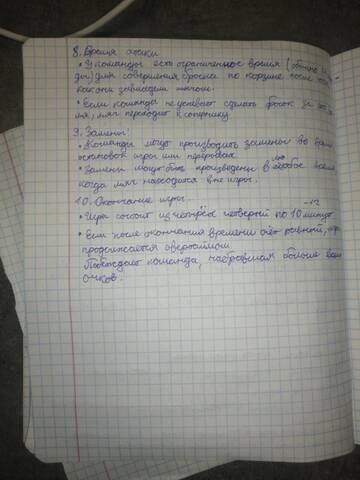 8. Время атаки
• У команды есть ограниченное время (обычно
для совершения броска по корзине после
как они завладели мячом.
• Если команды не успевают сделать бросок за
мя, мяч переходит к сопернику
9. Замены:
• Команды могут производить замены во время
остановок игры или перерывах
• Замены могут быть произведены в любое время
когда мяч находится вне игры.
10. Окончание игры.
• Игра состоит из четырёх четвертей по 10 минут
• Если после окончания времени счёт равный,
продолжается овертайм
Побеждает команда, набравшая больше всего
очков.